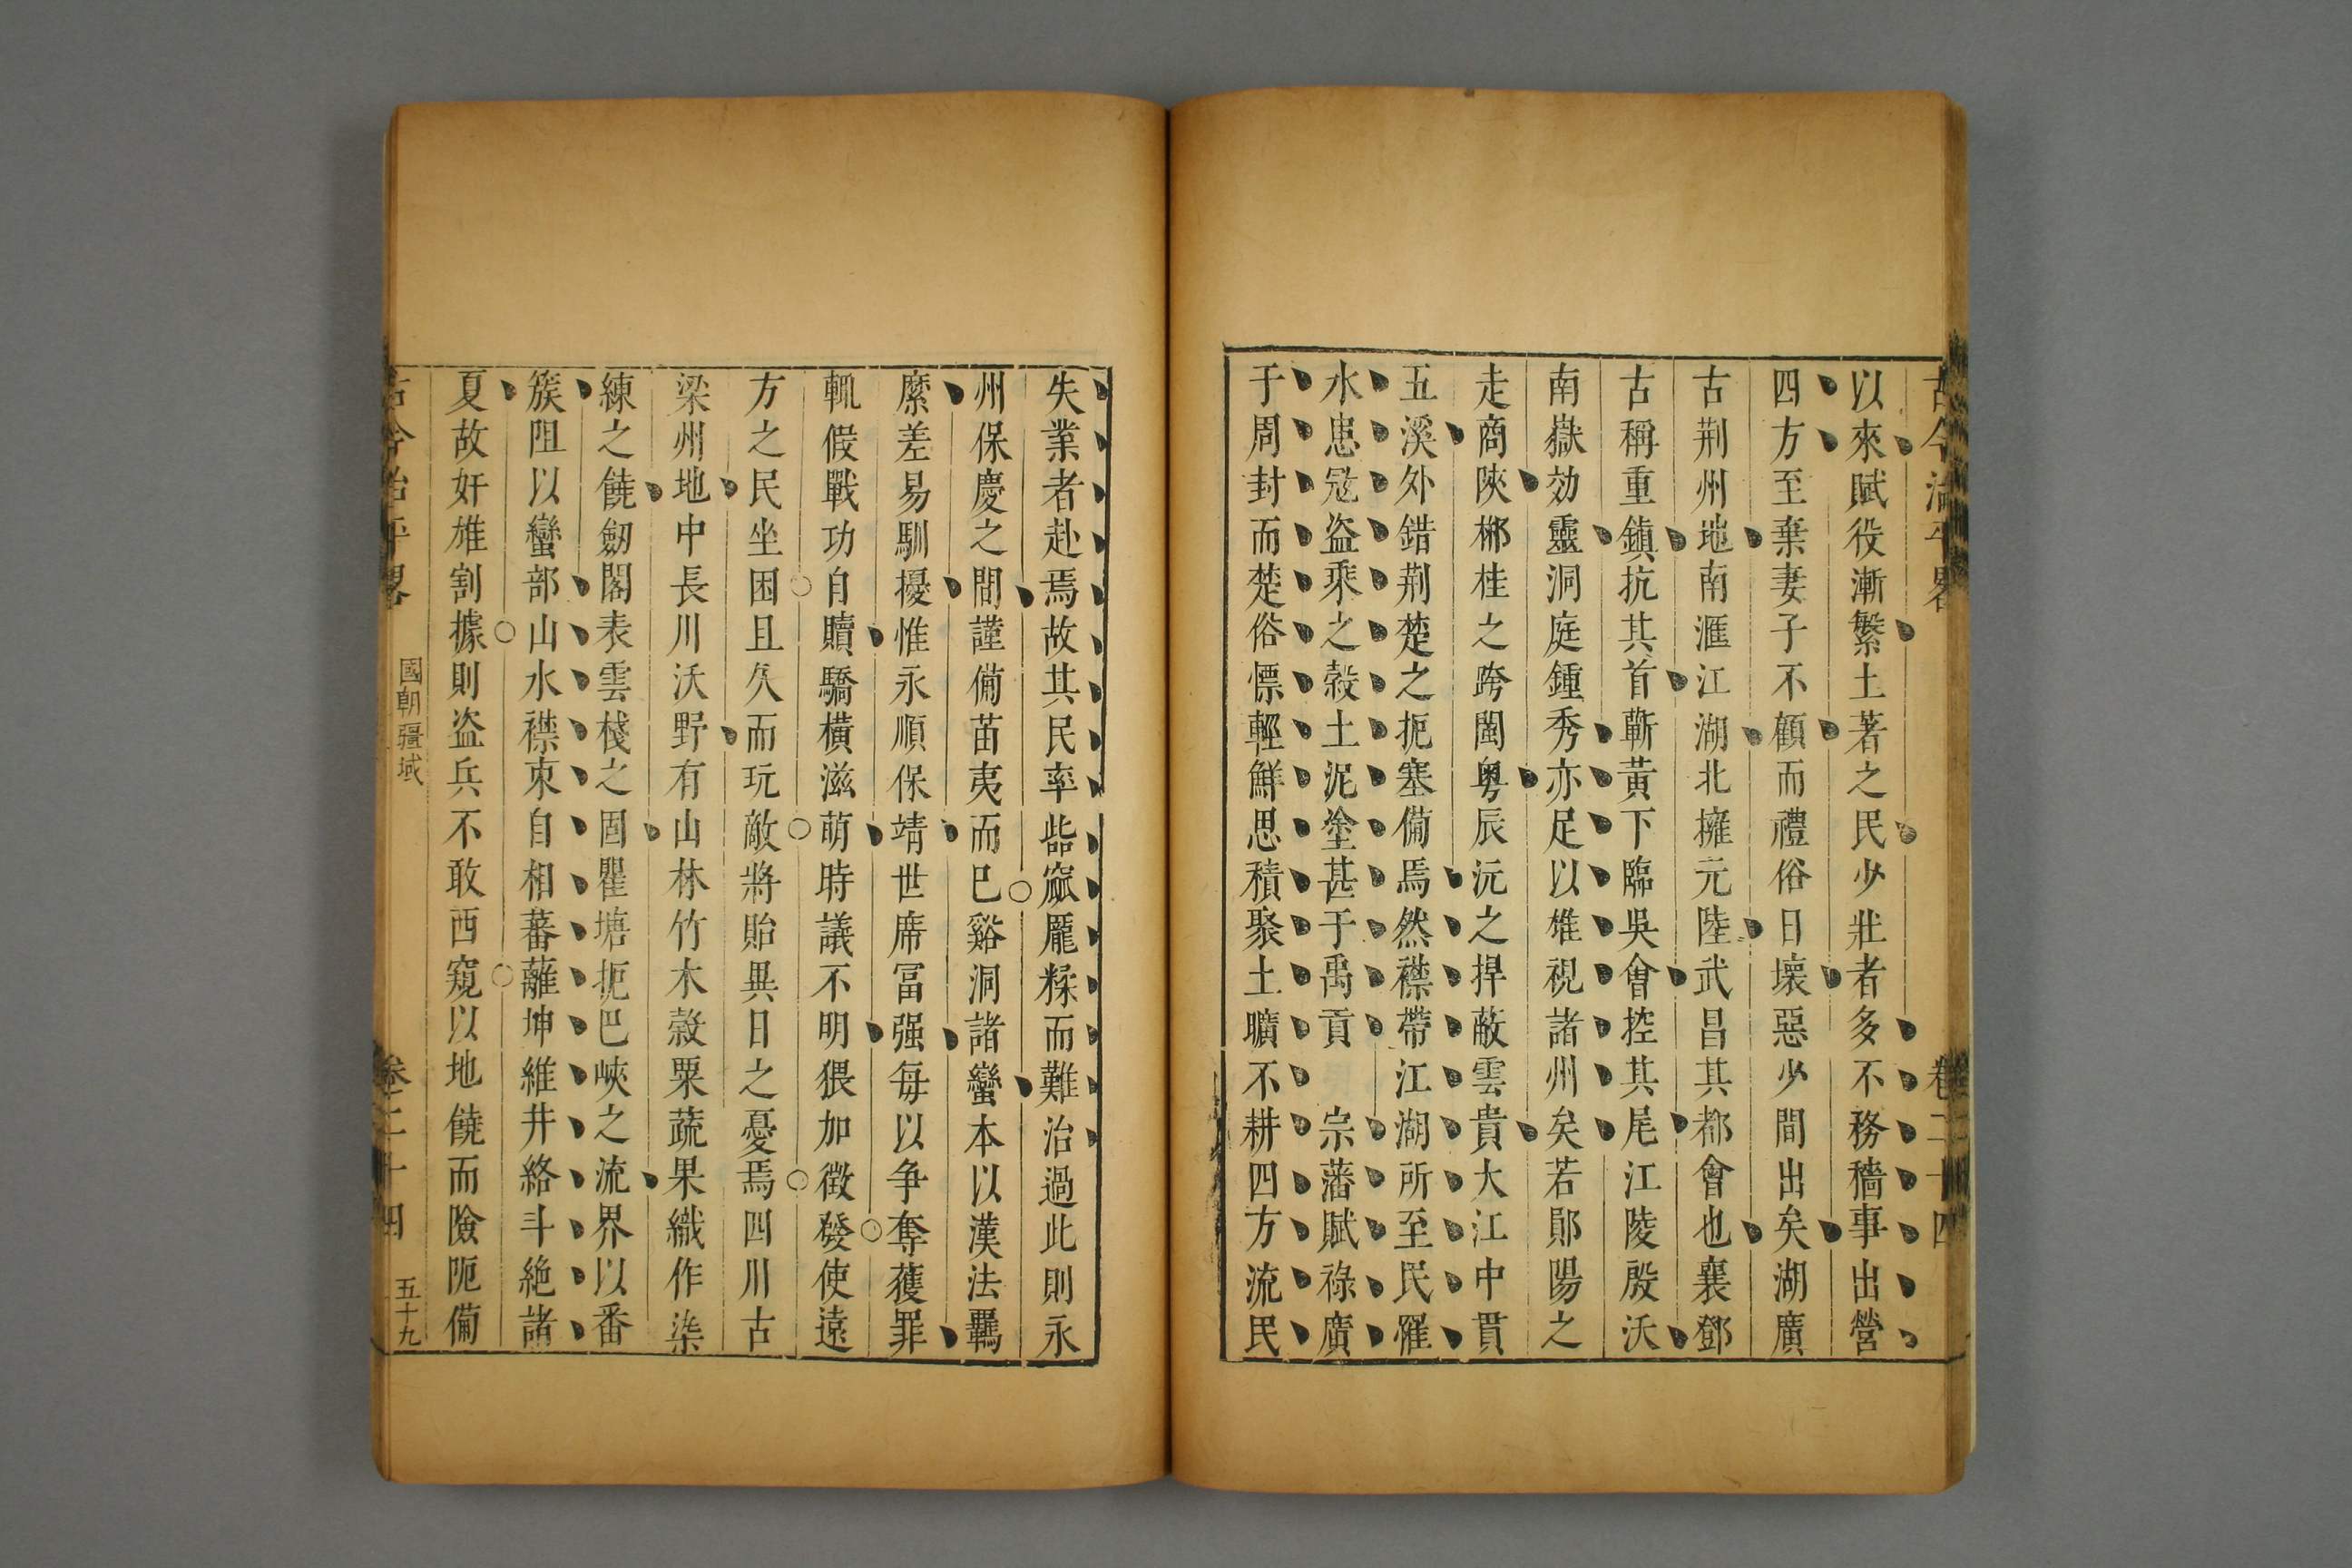 古今治平畧 卷二十四
以來賦役漸繁土著之民少壯者多不務穡事出營
四方至棄妻子不顧而禮俗日壞惡少間出矣湖廣
古荆州地南滙江湖北擁元陸武昌其都會也襄鄧
古稱重鎮抗其首蘄黃下臨吳會控其尾江陵殷沃
南嶽効靈洞庭鍾秀亦足以雄視諸州矣若鄖陽之
走商陝郴桂之跨閩粤辰沅之捍蔽雲貴大江中貫
五溪外錯荆楚之扼塞備焉然襟帶江湖所至民罹
水患冦盜乘之榖土泥塗甚于禹貢 宗藩賦祿廣
于周封而楚俗慓輕鮮思積聚土曠不耕四方流民
失業者赴焉故其民率呰窳厖糅而難治過此則永
州保慶之間謹備苗夷而巳谿洞諸蠻本以漢法羈
縻差易馴擾惟永順保靖世席冨强每以争奪獲罪
輒假戰功自贖驕橫滋萌時議不明猥加徵發使遠
方之民坐困且久而玩敵將貽異日之憂焉四川古
梁州地中長川沃野有山林竹木榖粟蔬果織作染
練之饒劒閣表雲棧之固瞿塘扼巴峽之流界以番
簇阻以蠻部山水襟束自相蕃蘺坤維井絡斗絶諸
夏故奸雄割據則盜兵不敢西窺以地饒而險阨備
古今治平畧 國朝疆域 卷二十四 五十九